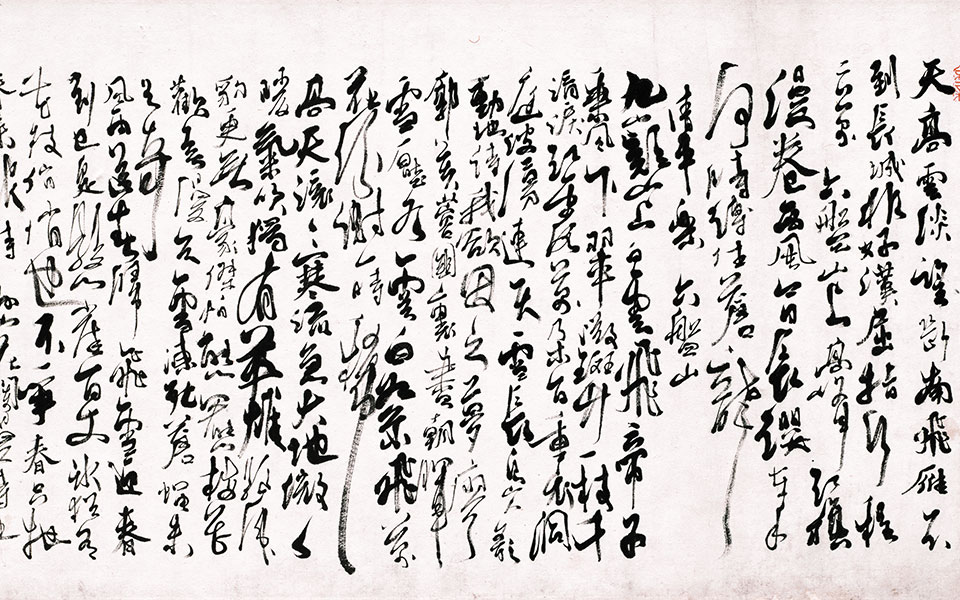 天高雲淡望斷南飛雁不
到長城非好漢屈指行程
二萬 六盤山上高峰 紅旗
漫卷西風今日長纓在手
何時縛住蒼龍
清平樂 六盤山
九嶷山上白雲飛帝子
乘風下翠微斑竹一枝千
滴淚紅霞萬朵百重衣洞
庭波湧連天雪長島人歌
動地詩我欲因之夢寥
廓芙蓉國裏盡朝暉
雪壓冬雲白絮飛萬
花紛謝一時稀
高天滾々寒流急大地微々
暖氣吹獨有英雄驅虎
豹更無豪傑怕熊羆梅花
歡喜漫天雪凍死蒼蠅未
足奇
風雨送春歸 飛雪迎春
到已是懸崖百丈冰猶有
花枝俏俏也不爭春只把